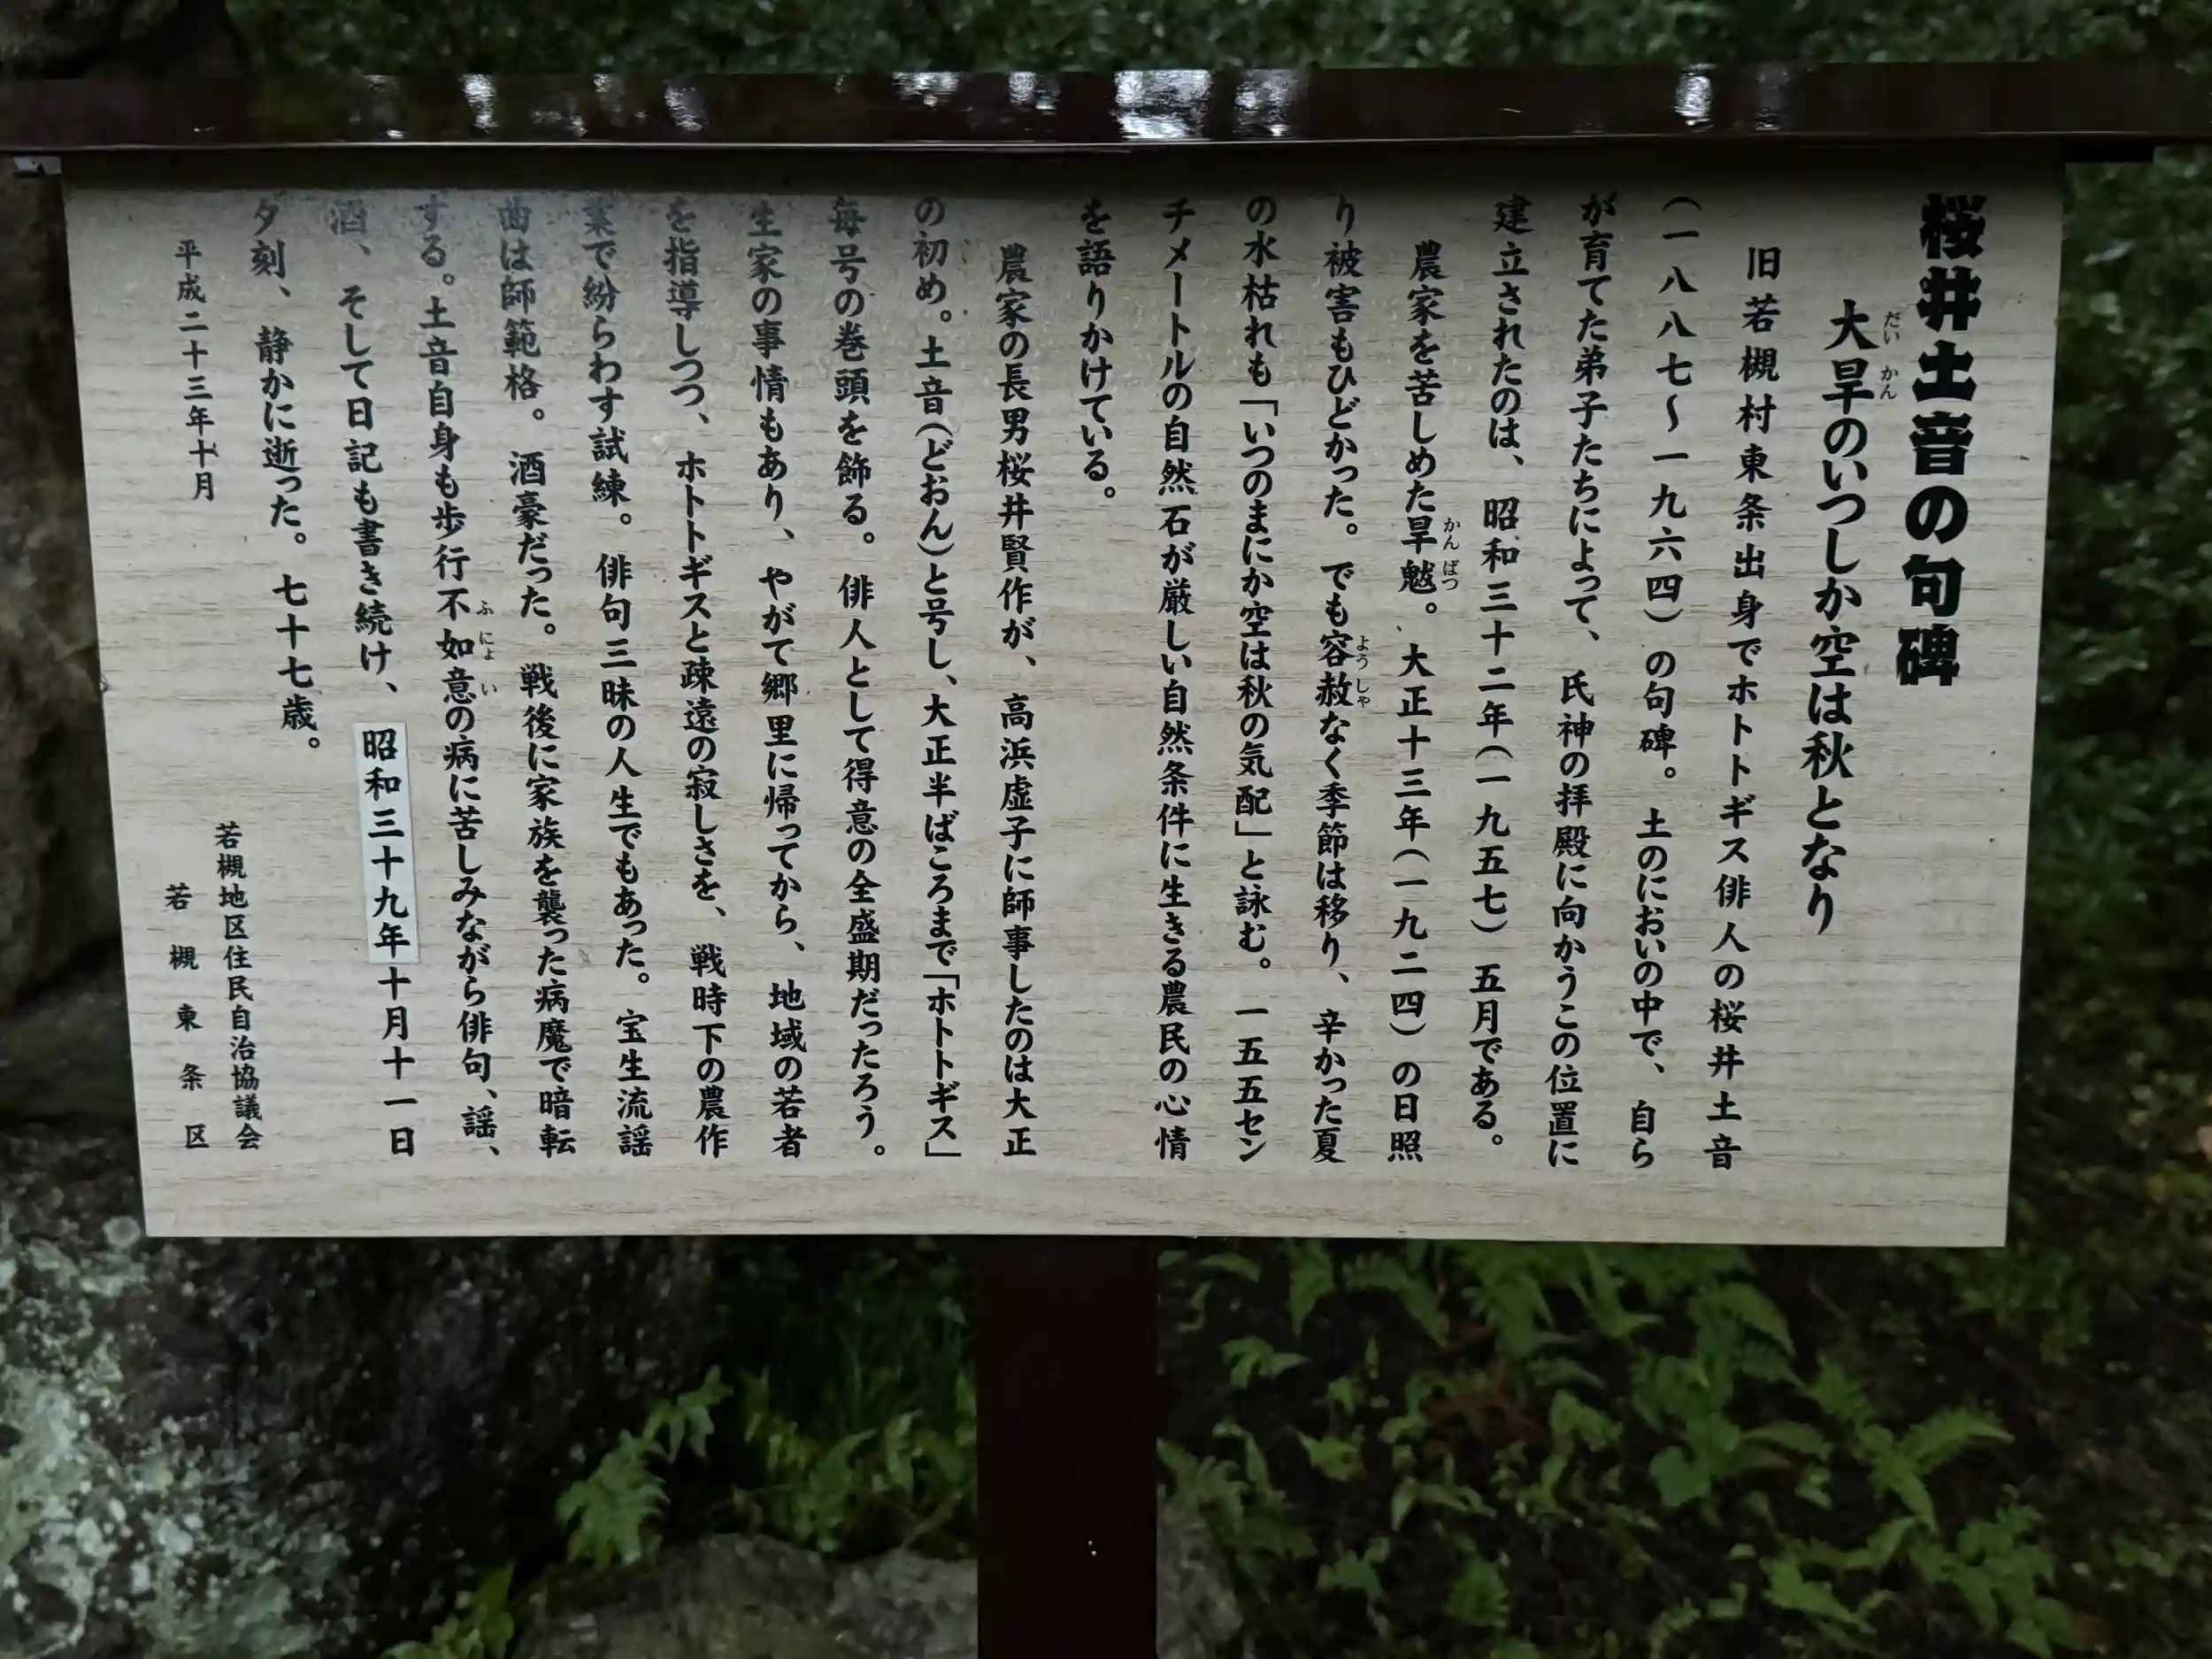 桜井土音の句碑
大旱のいつしか空は秋となり
だい かん
旧若槻村東条出身でホトトギス俳人の桜井土音
(一八八七〜一九六四)の句碑。土のにおいの中で、自ら
が育てた弟子たちによって、氏神の拝殿に向かうこの位置に
建立されたのは、昭和三十二年(一九五七)五月である。
農家を苦しめた旱魃。大正十三年(一九二四)の日照
かん ばつ
り被害もひどかった。でも容赦なく季節は移り、辛かった夏
よう しゃ
の水枯れも「いつのまにか空は秋の気配」と詠む。一五五セン
チメートルの自然石が厳しい自然条件に生きる農民の心情
を語りかけている。
農家の長男桜井賢作が、高浜虚子に師事したのは大正
の初め。土音(どおん)と号し、大正半ばころまで「ホトトギス」
毎号の巻頭を飾る。俳人として得意の全盛期だったろう。
生家の事情もあり、やがて郷里に帰ってから、地域の若者
を指導しつつ、ホトトギスと疎遠の寂しさを、戦時下の農作
業で紛らわす試練。俳句三昧の人生でもあった。宝生流謡
曲は師範格。酒豪だった。戦後に家族を襲った病魔で暗転
する。土音自身も歩行不如意の病に苦しみながら俳句、謡、
ふ にょ い
酒、そして日記も書き続け、昭和三十九年十月十一日
夕刻、静かに逝った。七十七歳。
平成二十三年十月
若槻地区住民自治協議会
若槻東条区